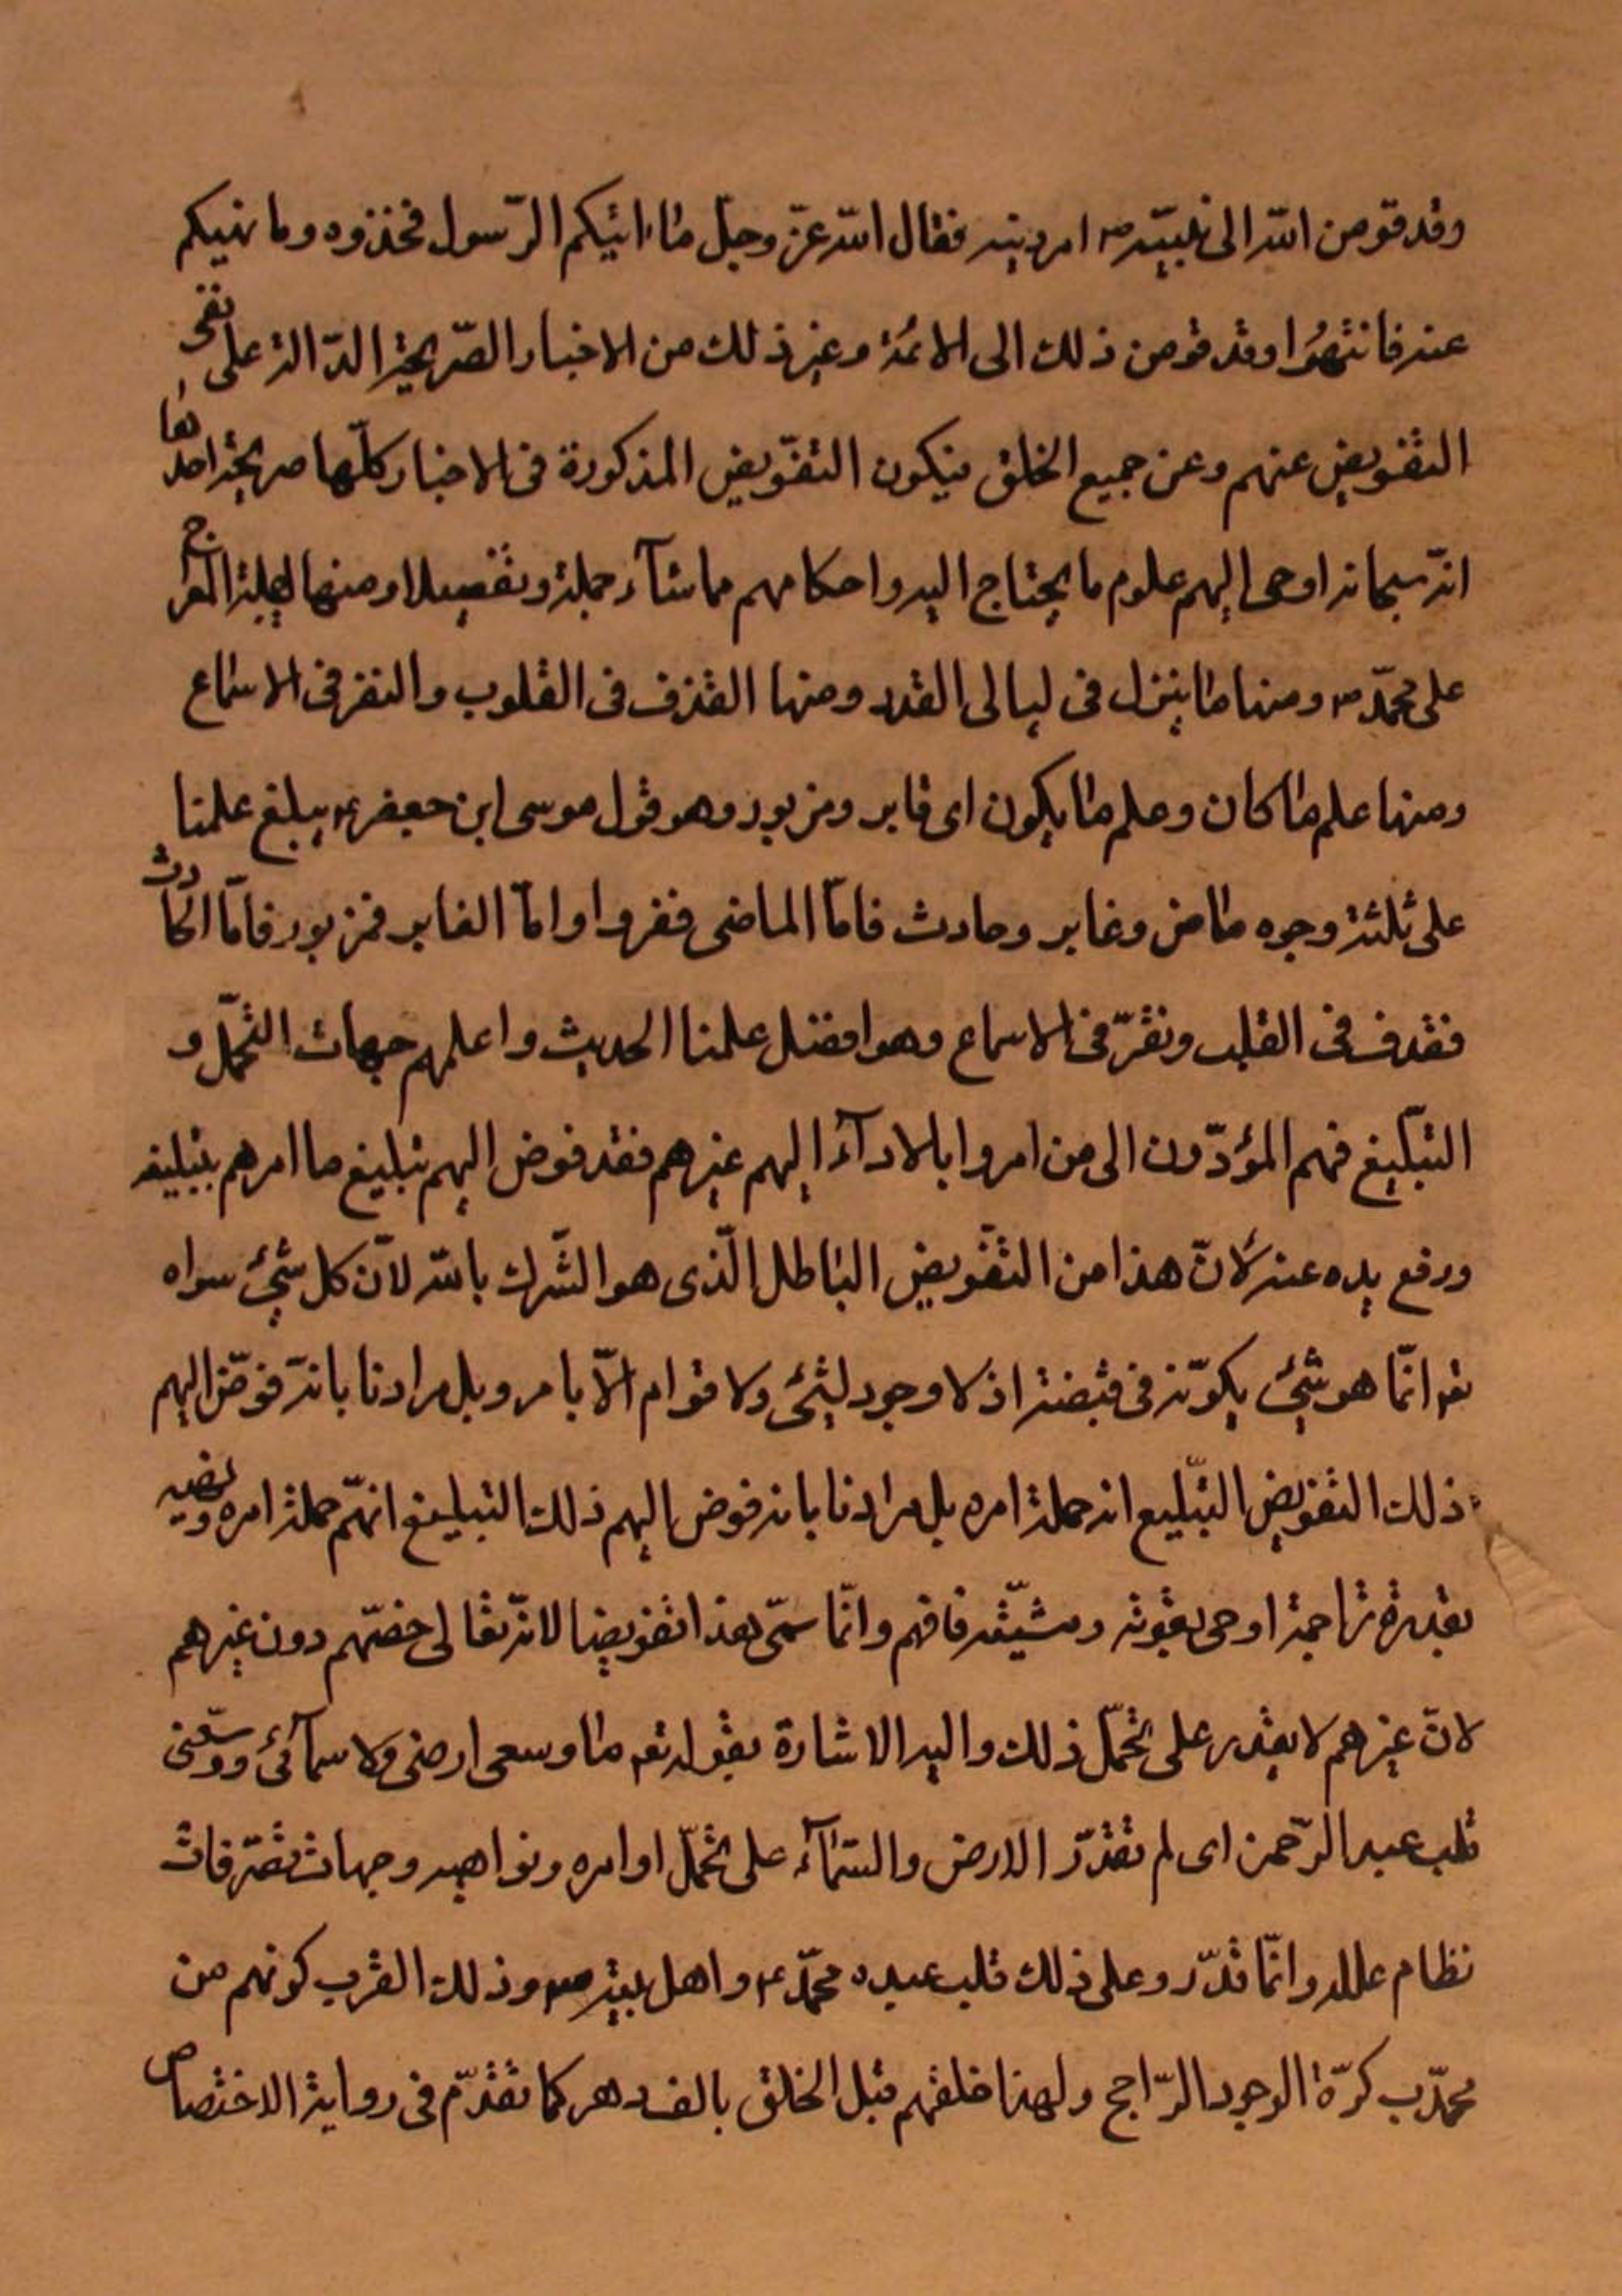 وقد فوض الله الى نبيّه ص امر دينه فقال الله عزّ وجلّ ما اتيكم الرّسول فخذوه وما نهيكم
عنه فانتهوا وقد فوض ذلك الى الائمة وغير ذلك من الاخبار الصّريحة الدّالة على نفى
التفويض عنهم وعن جميع الخلق فيكون التفّويض المذكورة فى الاخبار كلّها صريحة احدها
انّه سبحانه اوحى اليهم علوم ما يحتاج اليه واحكامهم مما شآء جملة وتفصيلا ومنها ليلة المعراج
على محمّد ص ومنها ما ينزل فى ليالى القدر ومنها القذف فى القلوب والنقر فى الاسماع
ومنها علم ما كان وعلم ما يكون اى غابر ومزبور وهو قول موسى ابن جعفر ع يبلغ علمنا
على ثلثة وجوه ماض وغابر وحادث فامّا الماضى ففروا وامّا الغابر فمزبور فامّا الحادث
فقذف فى القلب ونقرّ فى الاسماع وهو افضل علمنا الحديث واعلمهم جهات التحمّل و
التبّليغ فهم المؤدّون الى من امروا بالادآء اليهم غيرهم فقد فوض اليهم تبليغ ما امرهم بتبليغه
ورفع يده عنه لانّ هذا من التفّويض الباطل الّذى هو الشّرك بالله لانّ كل شئ سواه
تع انّما هو شئ يكوّنه فى قبضته اذ لا وجود لشئ ولا قوام الّا بامره بل مرادنا بانّه فوّض اليهم
ذلك التفويض التبّليع انه حملة امره بل مرادنا بانه فوض اليهم ذلك التبليغ انهّم حملة امره ونهيه
بقدرة تراجمة اوحى بقوته ومشيّته فافهم وانّما سمّى هذا تفويضا لانّه تعالى خصّهم دون غيرهم
لانّ غيرهم لا يقدر على تحمّل ذلك واليه الاشارة بقوله تع ما وسعى ارضى ولا سمآئى ووسّعنى
قلب عبد الرّحمن اى لم تقدّر الارض والسّمآء على تحمّل اوامره ونواهيه وجهات تصّرفات
نظام علله وانّما قدّر وعلى ذلك قلب عبده محمّد ص واهل بيته ص وذلك القرب كونهم من
محمدّب كرّة الوجود الرّاجح ولهذا خلقهم قبل الخلق بالف دهر كما تقدّم فى رواية الاختصاص